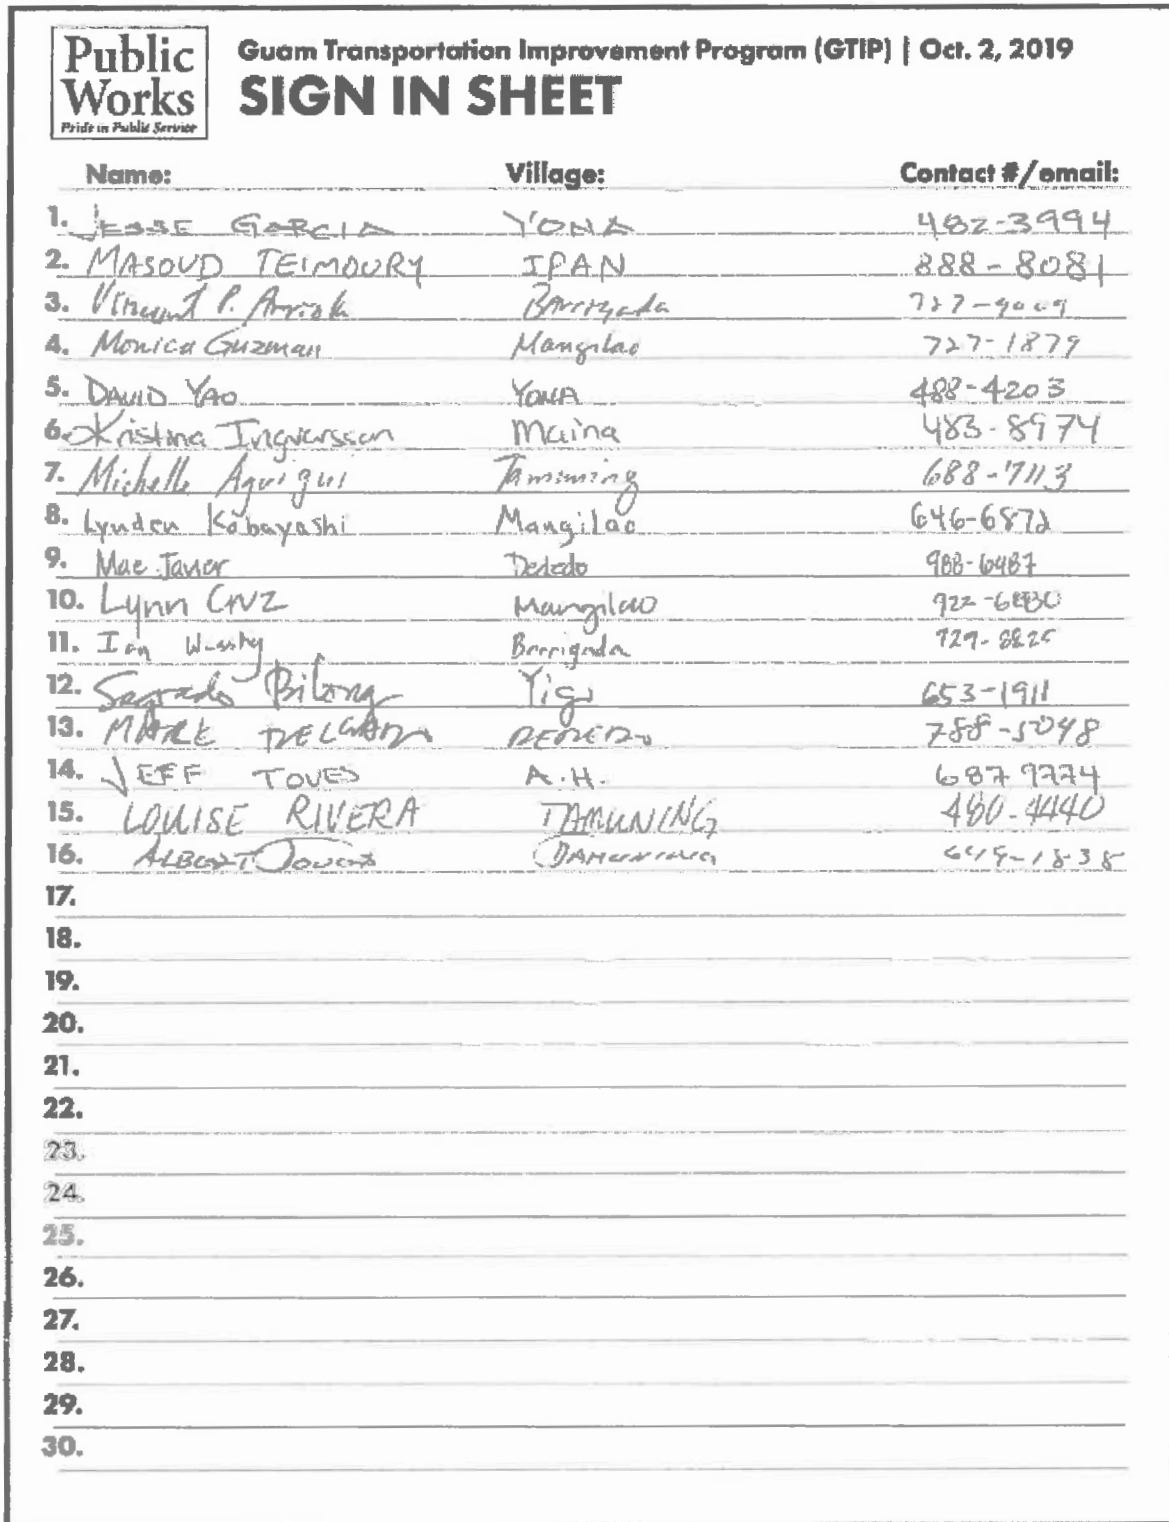 Public Works
Pride in Public Service
Guam Transportation Improvement Program (GTIP) | Oct. 2, 2019
SIGN IN SHEET
Name: Village: Contact #/email:
1. JESSE GARCIA YONA 482-3994
2. MASOUD TEIMOURY IPAN 888-8081
3. Vincent P. Arriola Barrigada
4. Monica Guzman Mangilao 727-1879
5. DAVID YAO YONA 488-4203
6. Kristina Ingvarsson Maina 483-8974
7. Michelle Aguigui Tamuning 688-7113
8. Lynden Kobayashi Mangilao 646-6872
9. Mae Javier Dededo 988-6487
10. Lynn CRUZ Mangilao
11. Ian Barrigada
12. Segrado Bilong Yigo 653-1911
13. MARK DELGADO DEDEDO 788-5048
14. JEFF TOVES A.H. 687-9774
15. LOUISE RIVERA TAMUNING 480-4440
16. ALBERT TAMUNING
17.
18.
19.
20.
21.
22.
23.
24.
25.
26.
27.
28.
29.
30.